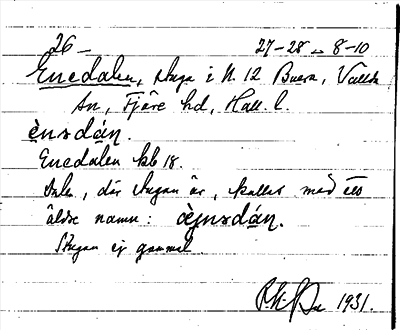 26 – 27-28 8-10
Enedalen, stuga i N. 12 Buera, Vallda
sn, Fjäre hd, Hall. l.
ènsdán.
Enedalen kb 18.
där stugan är, kallas med ett
äldre namn: èjnsdán.
Stugan ej gammal.
1931.